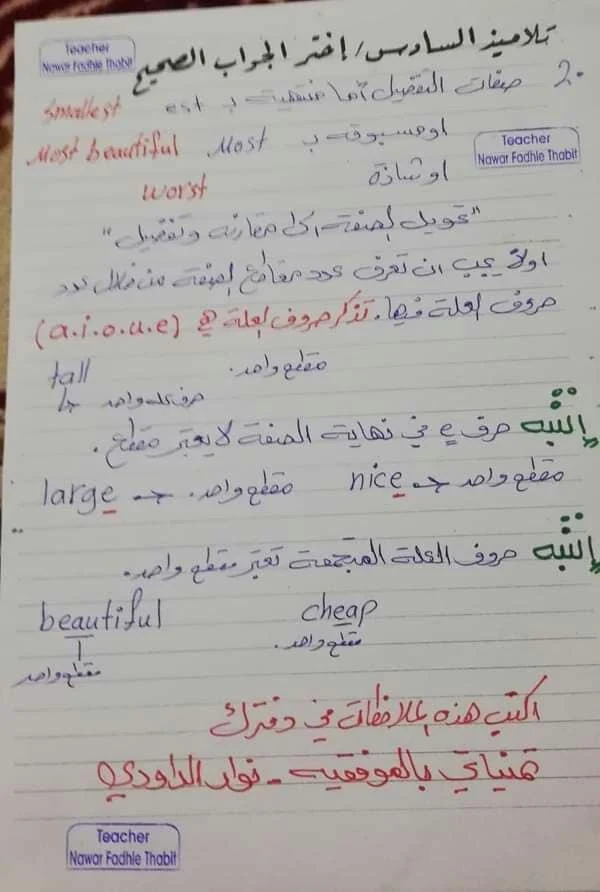 Teacher
Nawar Fadhle Thabit
تلاميذ السادس/ إختر الجواب الصحيح
2. صفات التفضيل أما منتهية بـ est smallest
او مسبوقة بـ Most Most beautiful
Teacher
Nawar Fadhle Thabit
او شاذة worst
"تحويل الصفة الى مقارنه وتفضيل"
اولاً يجب ان تعرف عدد مقاطع الصفة من خلال عدد
حروف العلة فيها. تذكر حروف العلة هي (a.i.o.u.e)
tall مقطع واحد.
حرف علة واحد
إنتبه حرف e في نهاية الصفة لا يعتبر مقطع.
nice مقطع واحد large مقطع واحد.
إنتبه حروف العلة المتجمعة تعتبر مقطع واحد.
cheap beautiful
مقطع واحد. مقطع واحد
اكتب هذه الملاحظات في دفترك
تمنياتي بالموفقيه - نوار الداودي
Teacher
Nawar Fadhle Thabit